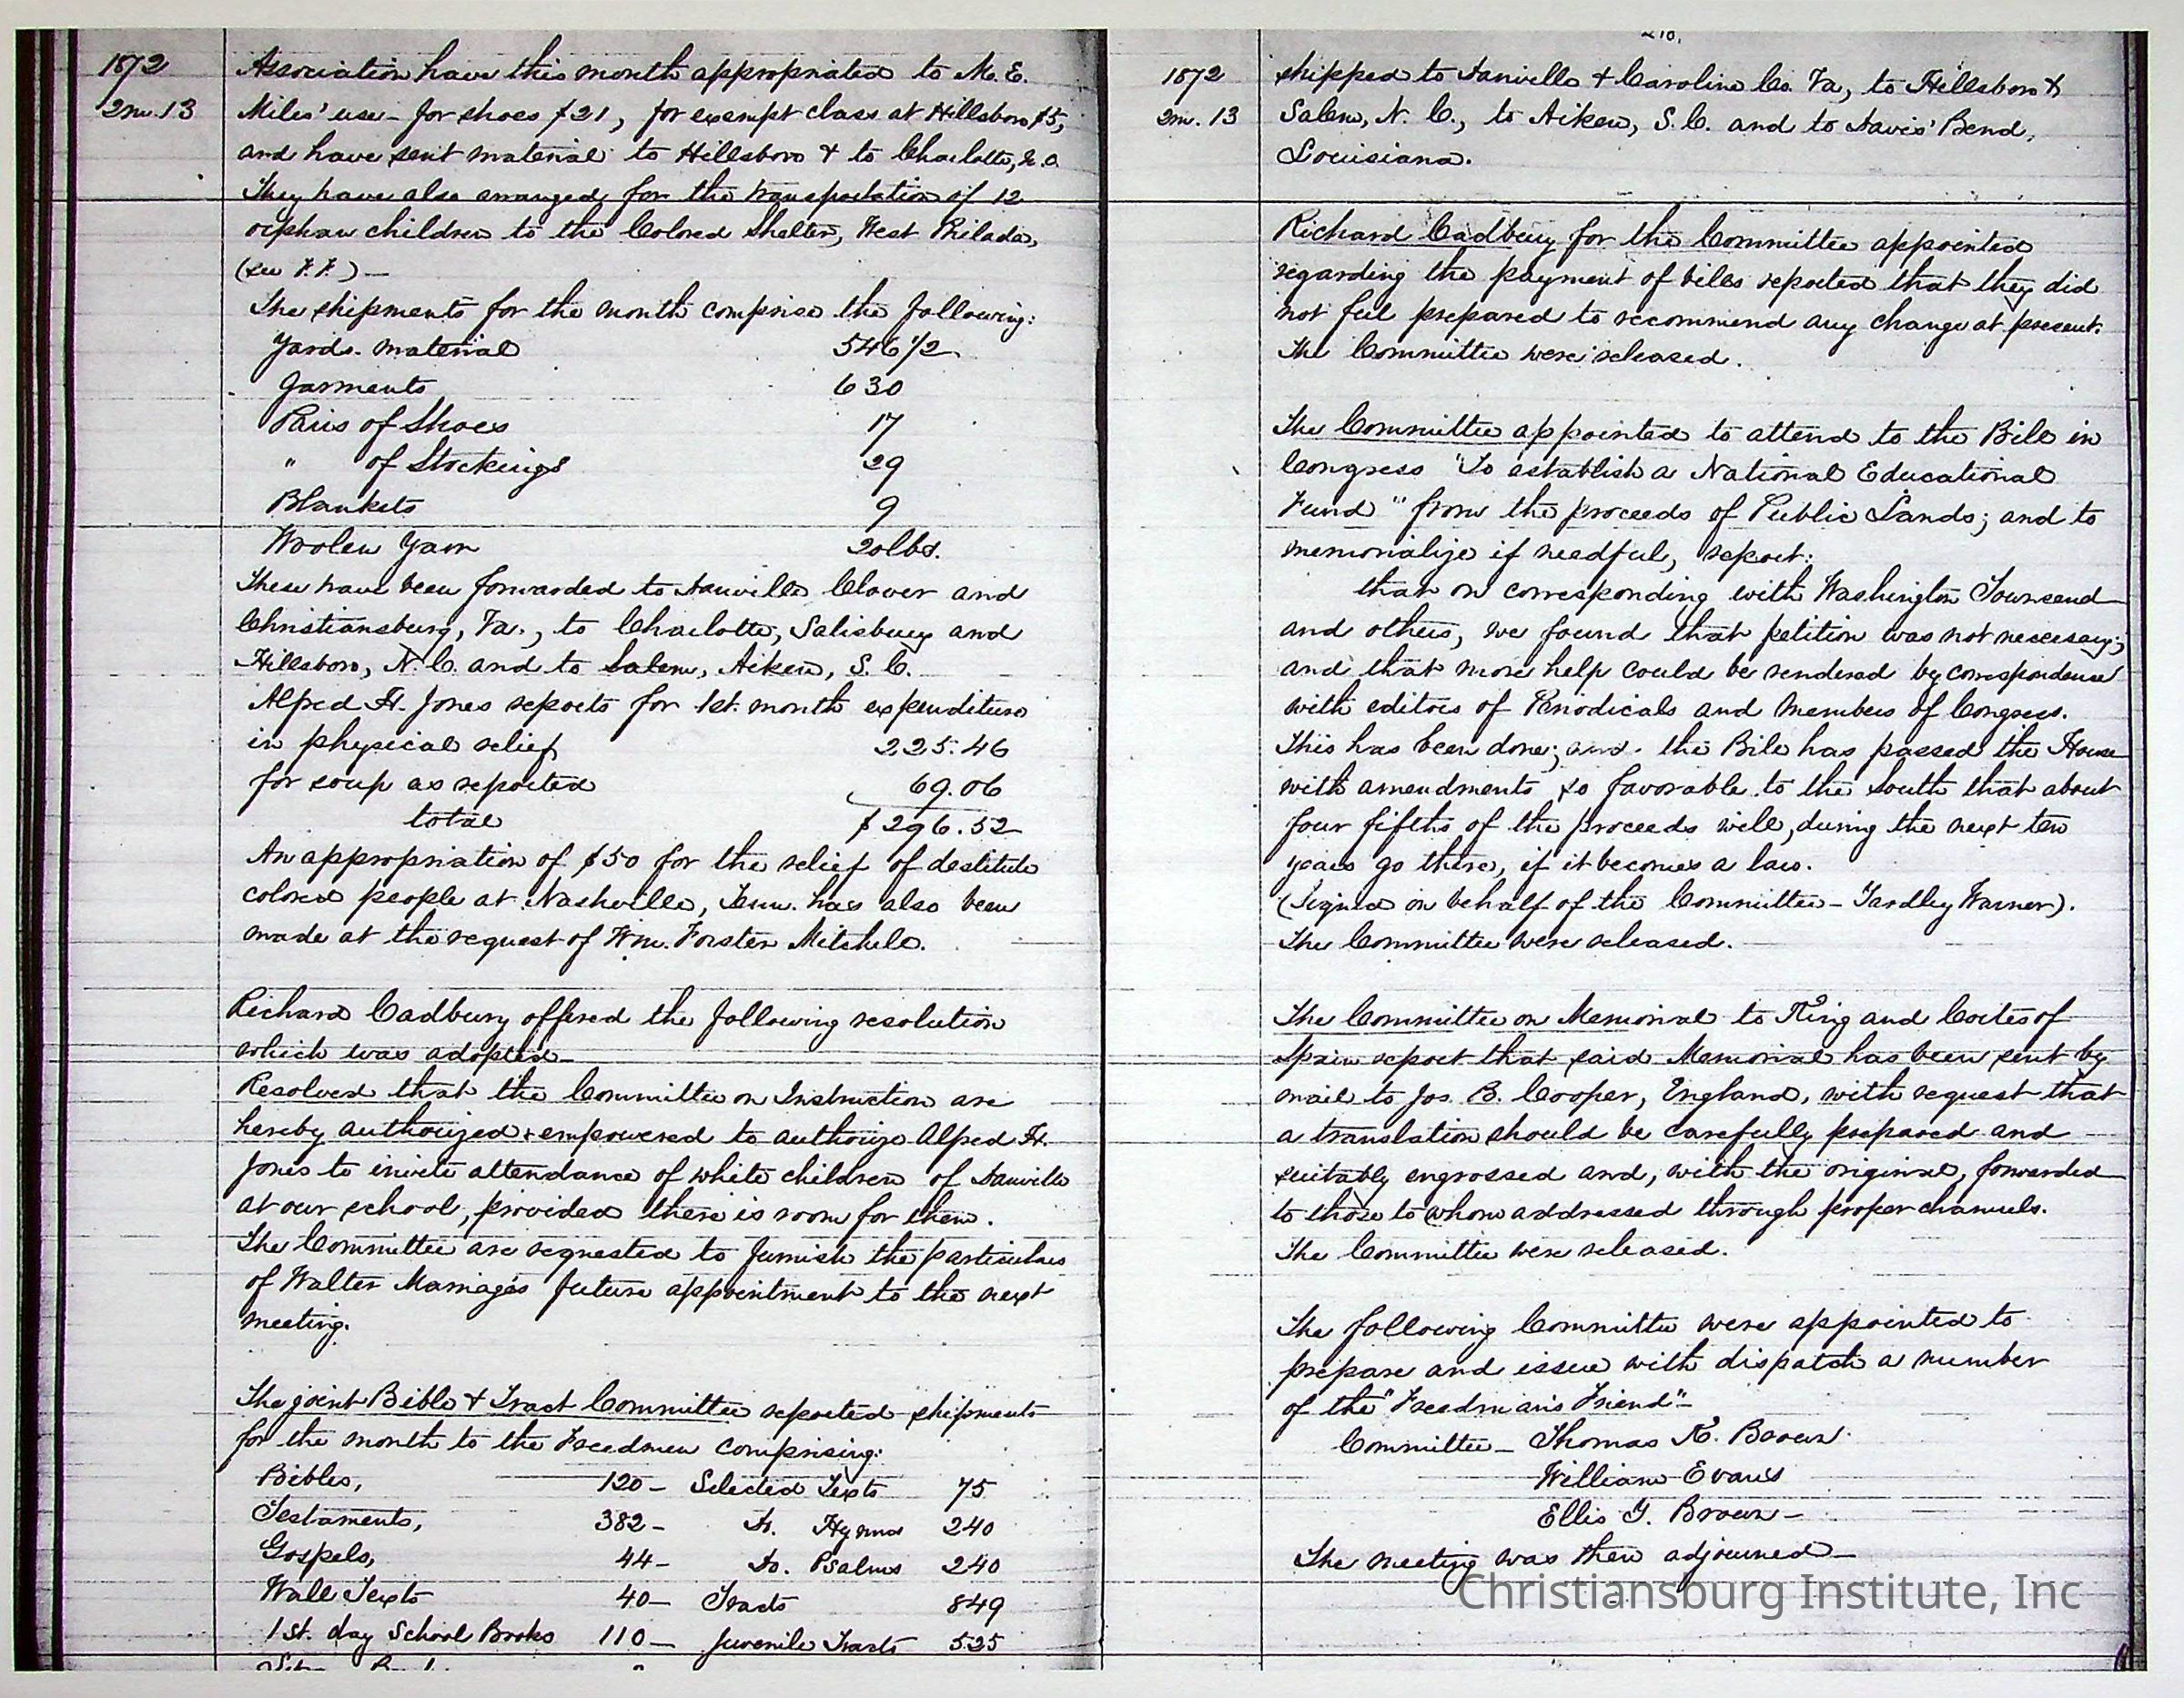 1872
2m. 13
Association have this month appropriated to M. E.
Miles' use - for shoes $21, for exempt class at Hillsboro $5,
and have sent material to Hillsboro & to Charlotte, N.C.
They have also arranged for the transportation of 12
orphan children to the Colored Shelter, West Philada,
(see F.F.) —
The shipments for the month comprise the following:
Yards. material 546 1/2
Garments 630
Pairs of Shoes 17
" of Stockings 29
Blankets 9
Woolen Yarn 20lbs.
These have been forwarded to Danville Clover and
Christiansburg, Va., to Charlotte, Salisbury and
Hillsboro, N.C. and to Salem, Aiken, S.C.
Alfred H. Jones reports for 1st. month expenditure
in physical relief 225.46
for soup as reported 69.06
total $296.52
An appropriation of $50 for the relief of destitute
colored people at Nashville, Tenn. has also been
made at the request of Wm. Forster Mitchell.
Richard Cadbury offered the following resolution
which was adopted —
Resolved that the Committee on Instruction are
hereby authorized & empowered to authorize Alfred H.
Jones to invite attendance of white children of Danville
at our school, provided there is room for them.
The Committee are requested to furnish the particulars
of Walter Marriage's future appointment to the next
meeting.
The joint Bible & Tract Committee reported shipments
for the month to the Freedmen comprising:
Bibles, 120 — Selected Texts 75
Testaments, 382 — Do. Hymns 240
Gospels, 44 — Do. Psalms 240
Wall Texts 40 — Tracts 849
1st. day School Books 110 — Juvenile Tracts 525
210.
1872
2m. 13
shipped to Danville & Caroline Co. Va, to Hillsboro &
Salem, N.C., to Aiken, S.C. and to Davis' Bend,
Louisiana.
Richard Cadbury for the Committee appointed
regarding the payment of bills reported that they did
not feel prepared to recommend any change at present.
The Committee were released.
The Committee appointed to attend to the Bill in
Congress "To establish a National Educational
Fund" from the proceeds of Public Lands; and to
memorialize if needful, report:
that on corresponding with Washington Townsend
and others, we found that petition was not necessary;
and that more help could be rendered by correspondence
with editors of Periodicals and members of Congress.
This has been done; and the Bill has passed the House
with amendments so favorable to the South that about
four fifths of the proceeds will, during the next ten
years go there, if it becomes a law.
(Signed on behalf of the Committee - Yardley Warner).
The Committee were released.
The Committee on Memorial to King and Cortes of
Spain report that said Memorial has been sent by
mail to Jos. B. Cooper, England, with request that
a translation should be carefully prepared and
suitably engrossed and, with the original, forwarded
to those to whom addressed through proper channels.
The Committee were released.
The following Committee were appointed to
prepare and issue with dispatch a number
of the "Freedman's Friend" -
Committee - Thomas K. Brown
William Evans
Ellis Y. Brown -
The meeting was then adjourned —
Christiansburg Institute, Inc